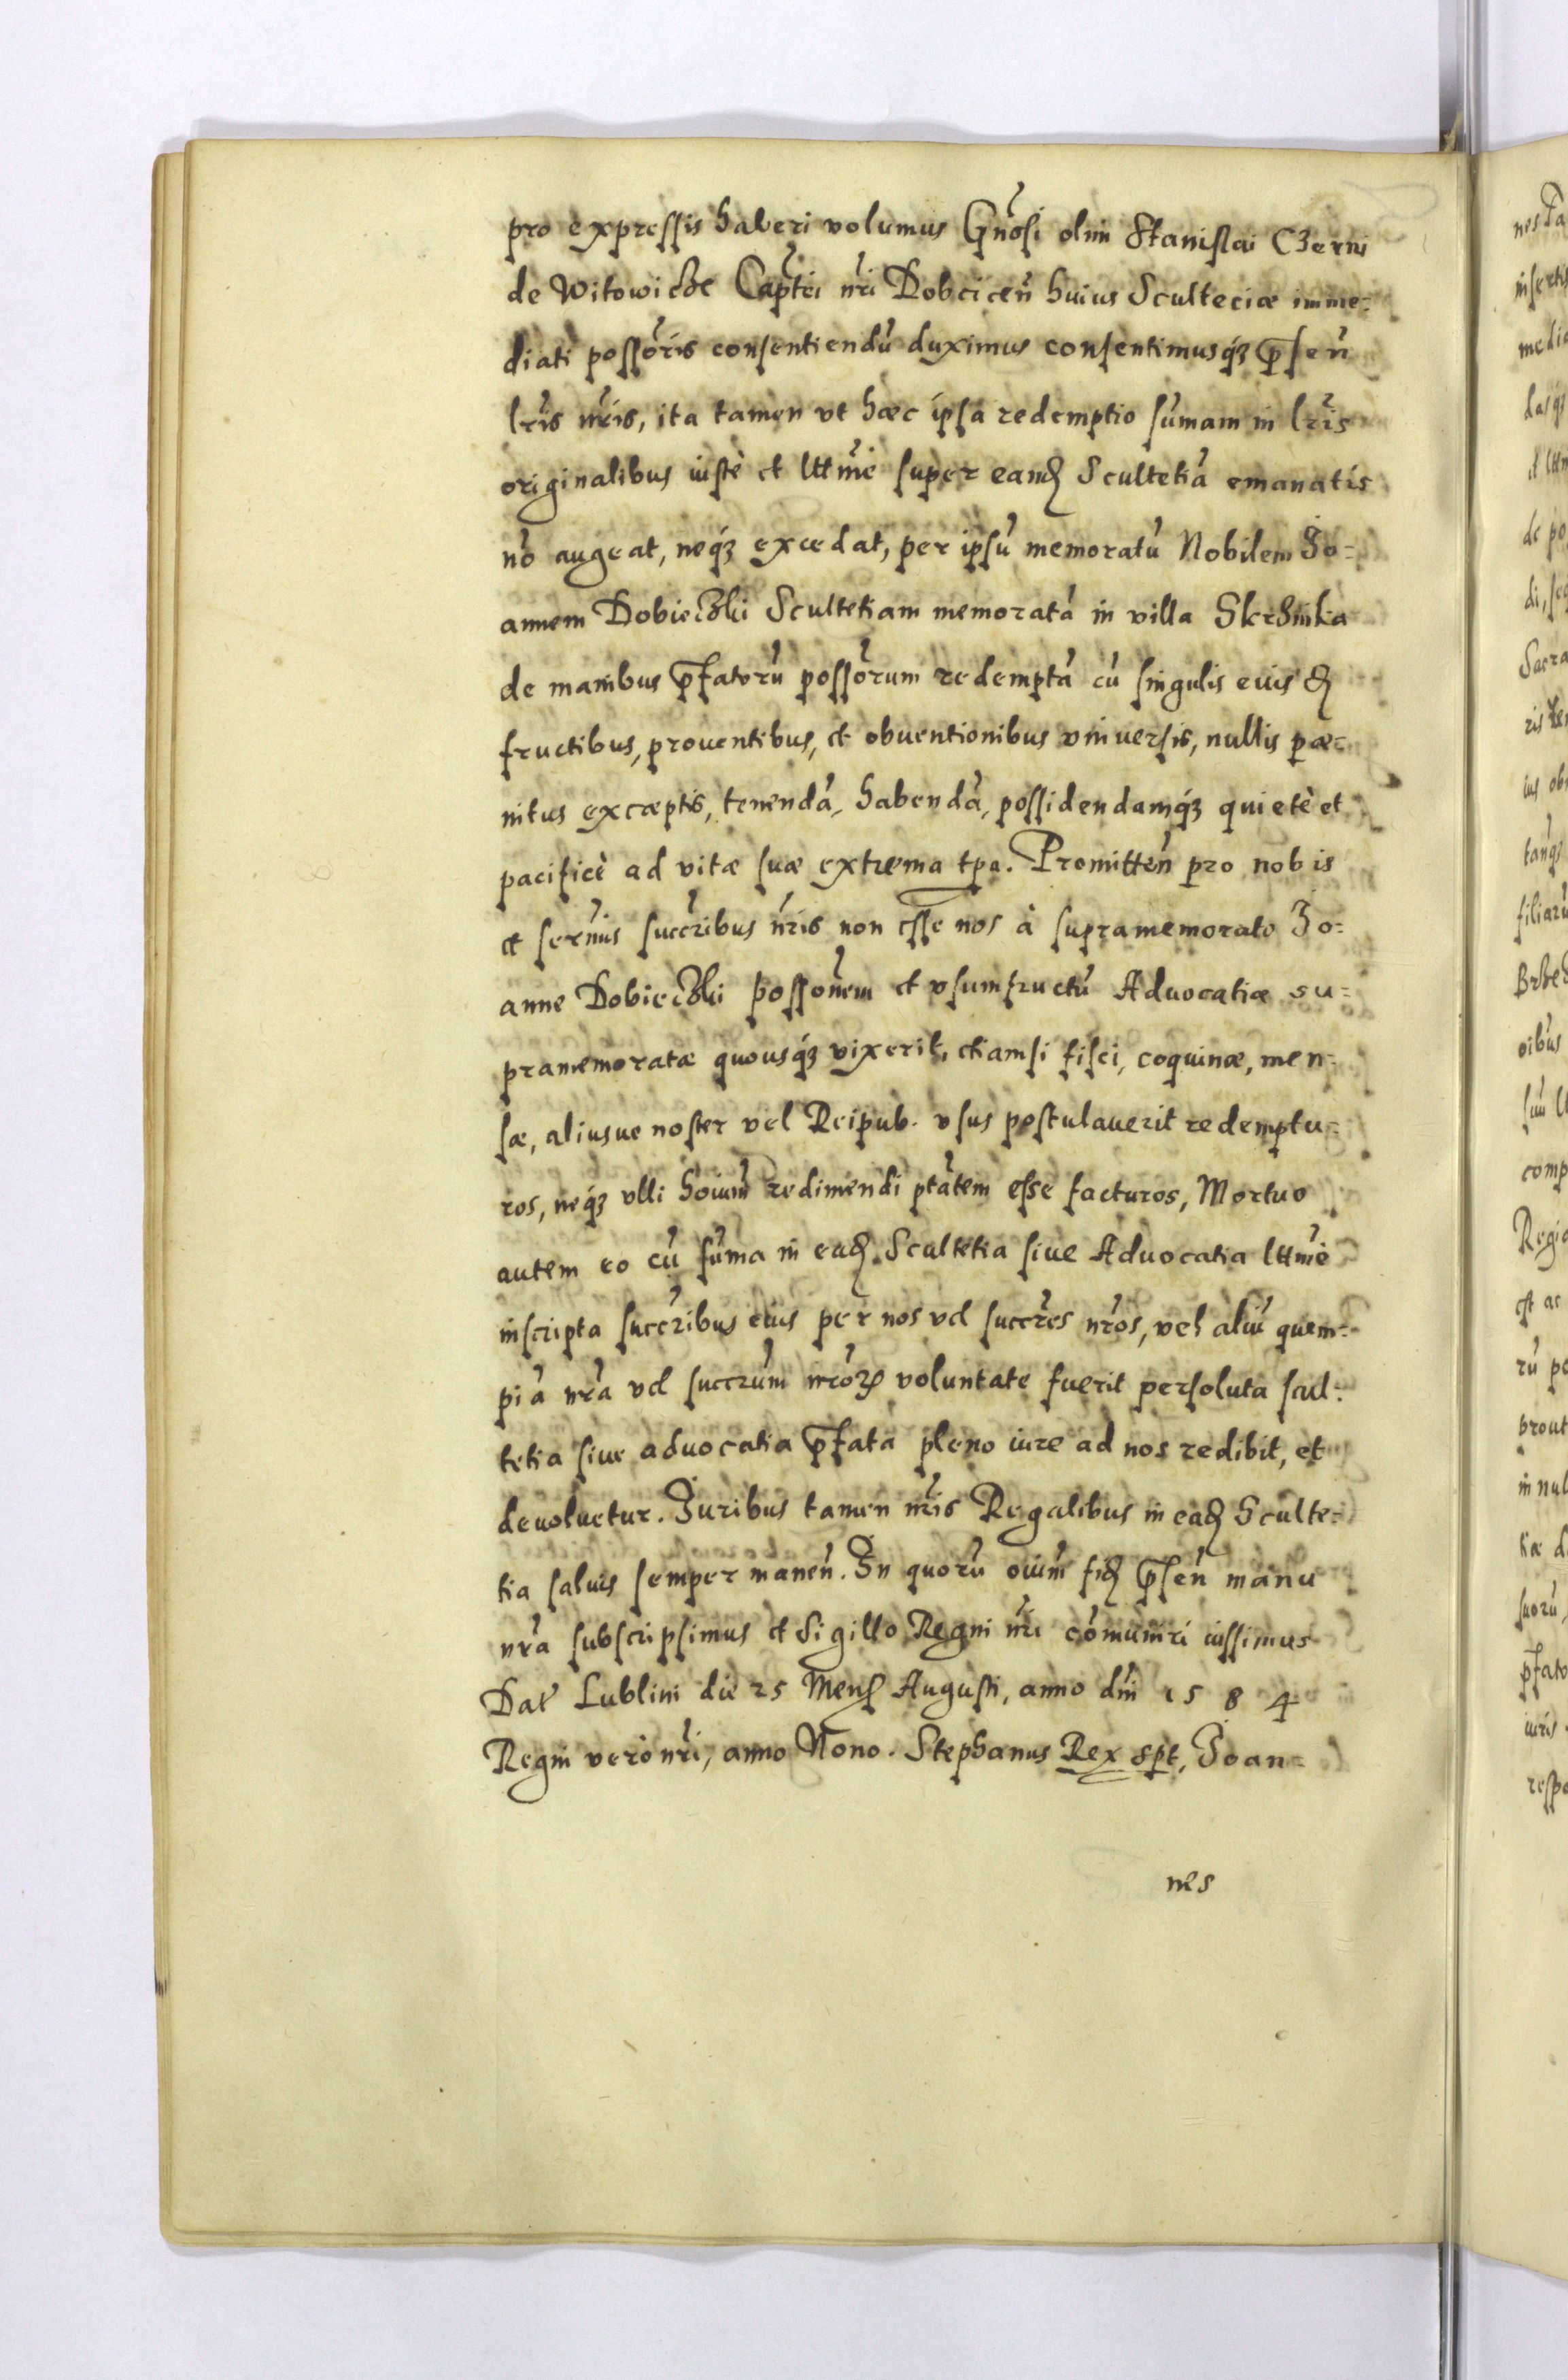 pro expressis haberi volumus Gnosi olim Stanislai Czerni
de Witowicze Captei nri Dobcicen huius Sculteciæ imme=
diati possoris consentiendu duximus consentimusq3 pnsen
lris nris, ita tamen ut hæc ipsa redemptio sumam in lris
originalibus iustè et lttme super eand Scultetia emanatis
no augeat, neq3 excedat, per ipsu memoratu Nobilem Jo=
annem Dobieczki Scultetiam memorata in villa Skrzinka
de manibus pfatoru possorum redempta cu singulis eiusd
fructibus, prouentibus, et obuentionibus vniuersis, nullis pæ=
nitus exceptis, tenenda, habenda, possidendamq3 quietè et
pacificè ad vitæ suæ extrema tpa. Promitten pro nobis
et sernis succribus nris non esse nos à supramemorato Jo=
anne Dobieczki possonem et vsumfructu Advocatiæ su=
pramemoratæ quousq3 vixerit, etiamsi fisci, coquinæ, men=
sæ, aliusue noster vel Reipub. vsus postulauerit redemptu=
ros, neq3 vlli hoium redimendi ptatem esse facturos, Mortuo
autem eo cu suma in ead Scultetia siue Advocatia lttme
inscripta succribus eius per nos vel succres nros, vel aliu quem=
pia nra vel succrum nror voluntate fuerit persoluta scul=
tetia siue advocatia pfata pleno iure ad nos redibit, et
devoluetur. Juribus tamen nris Regalibus in ead Sculte=
tia saluis semper manen. In quoru oium fid pnsen manu
nra subscripsimus et Sigillo Regni nri comuniri iussimus
Dat Lublini die 25 Mens Augusti, anno dni 1584
Regni verò nri, anno Nono. Stephanus Rex spt, Joan=
nes